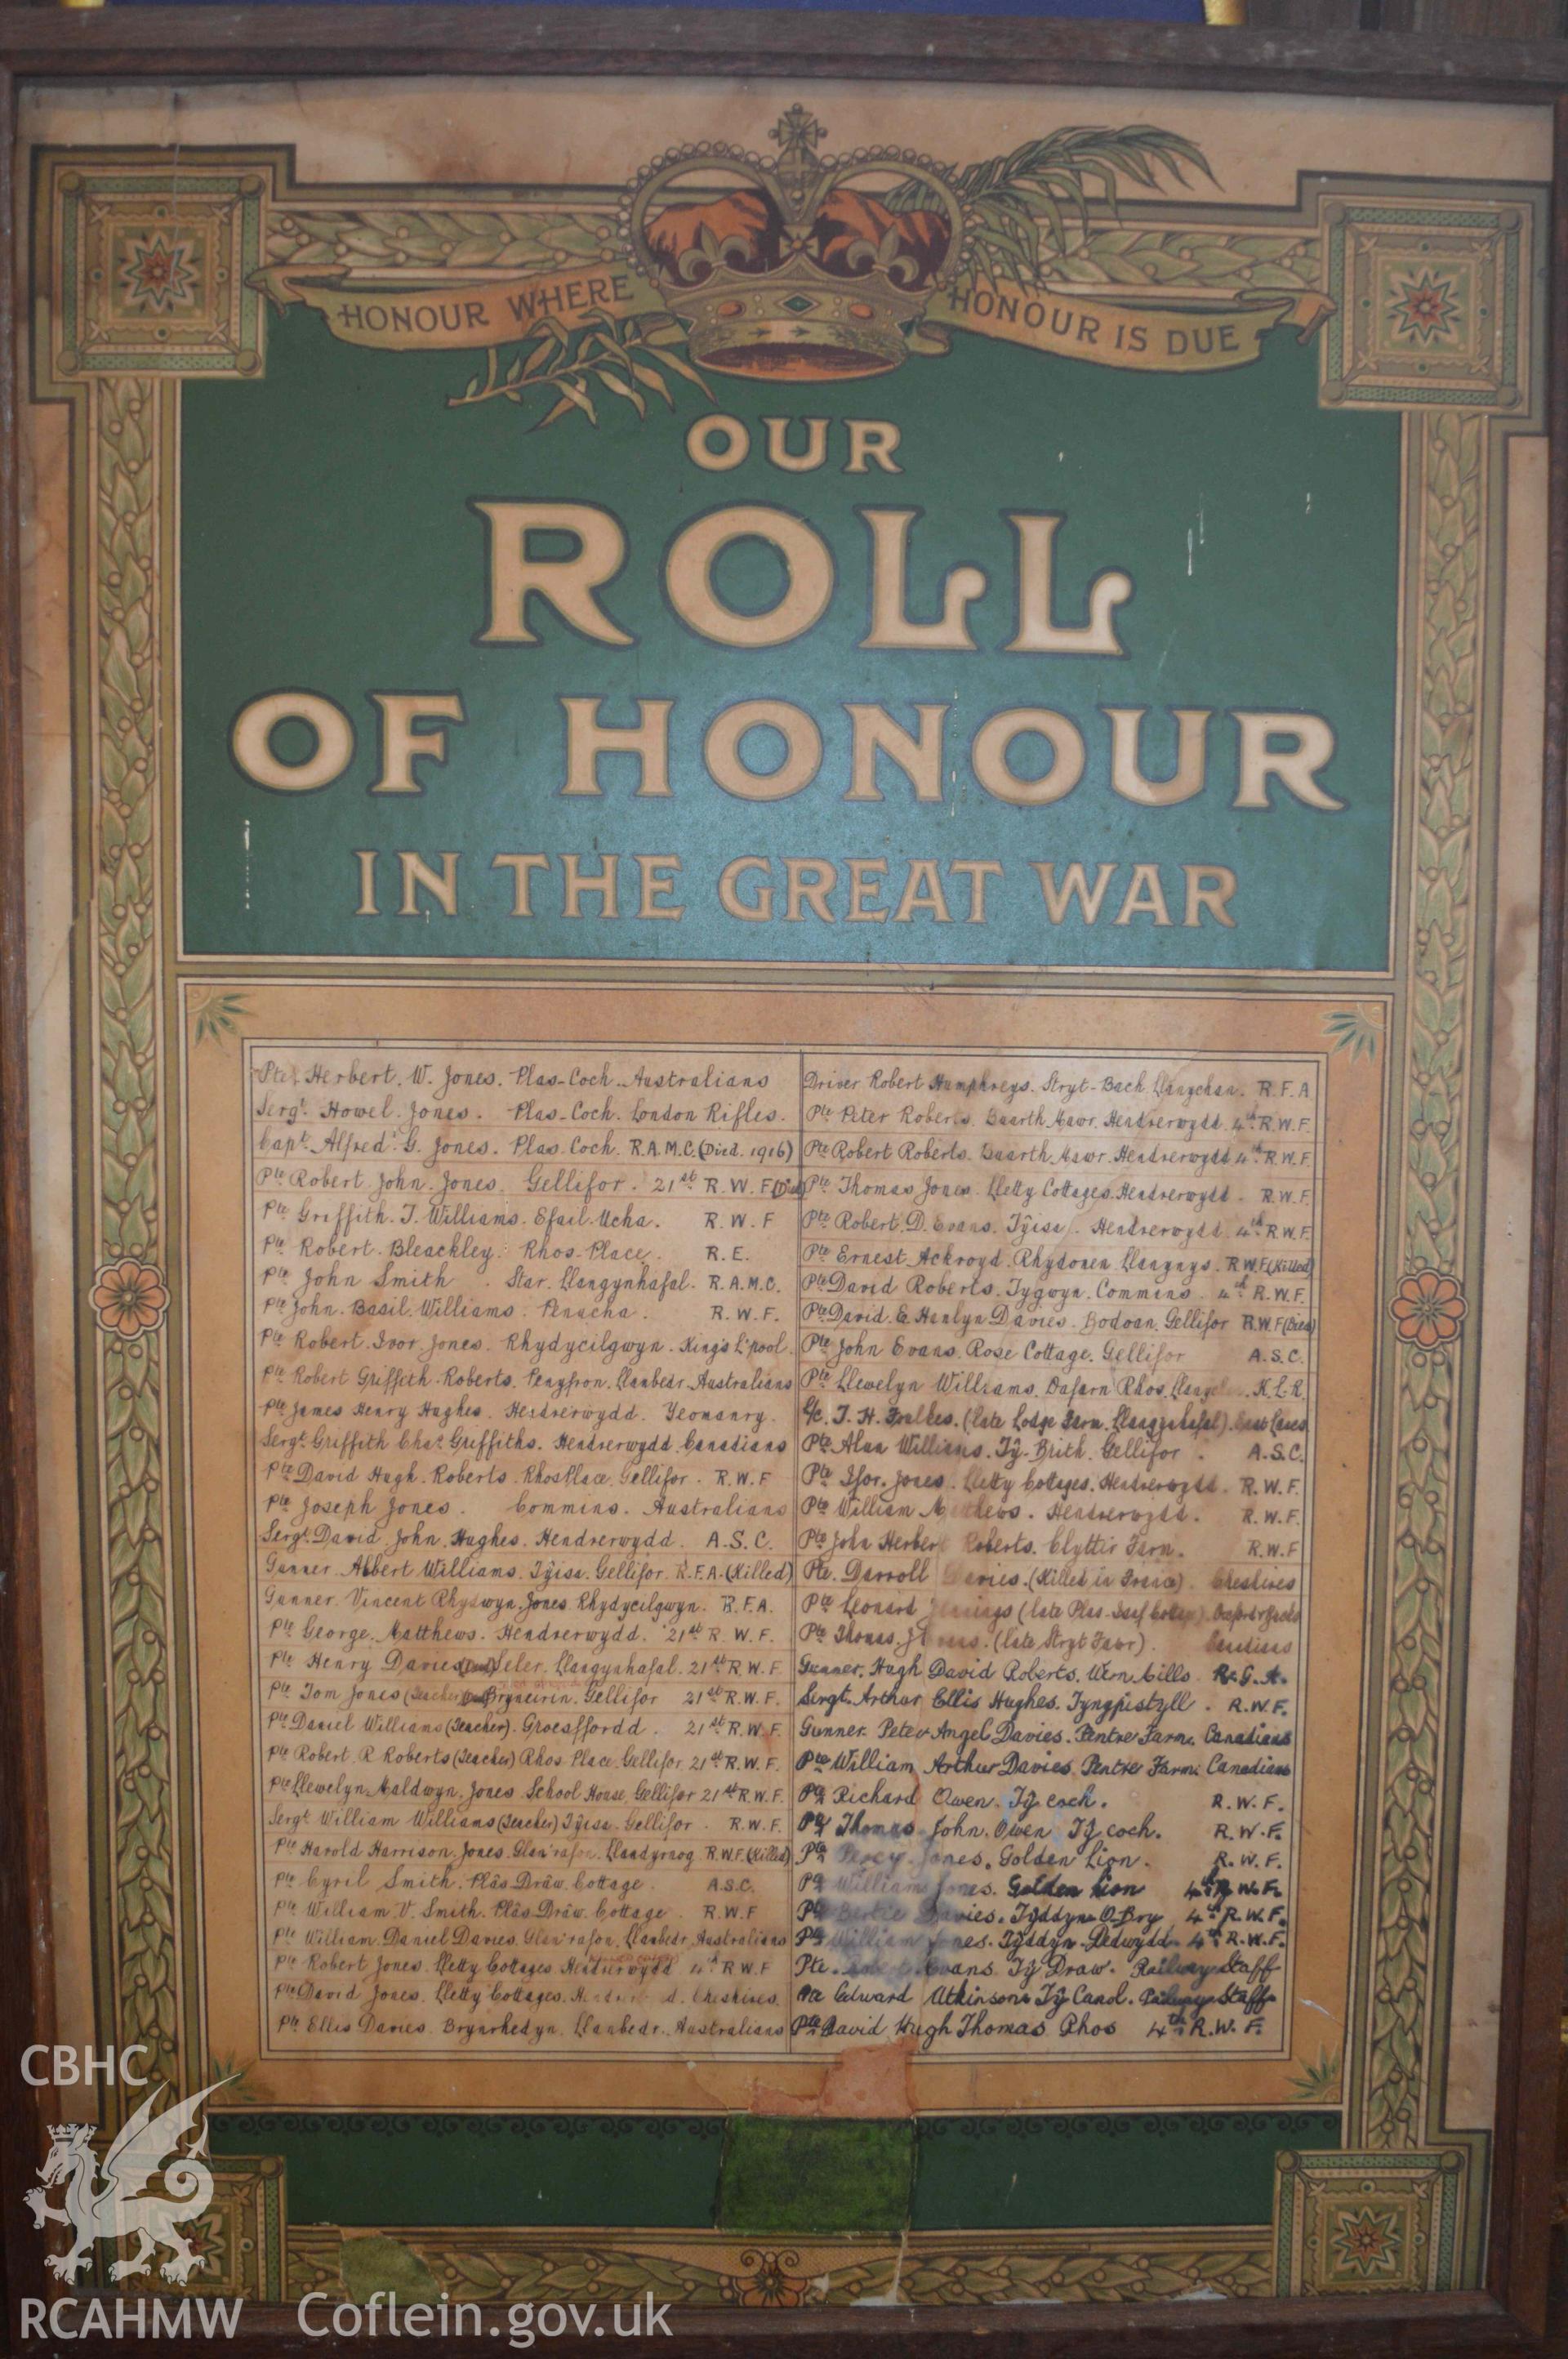 HONOUR WHERE HONOUR IS DUE
OUR
ROLL
OF HONOUR
IN THE GREAT WAR
Pte Herbert. W. Jones. Plas-Coch. Australians
Sergt. Howel. Jones. Plas-Coch. London Rifles.
Capt. Alfred. G. Jones. Plas. Coch. R.A.M.C. (Died. 1916)
Pte Robert John. Jones. Gellifor. 21st R. W. F
Pte Griffith. T. Williams. Efail-Ucha. R. W. F
Pte Robert. Bleackley. Rhos-Place. R. E.
Pte John Smith. Star. Llangynhafal. R. A. M. C.
Pte John. Basil. Williams. Penucha. R. W. F.
Pte Robert. Ivor Jones. Rhydycilgwyn. Kings L'pool.
Pte Robert Griffith. Roberts. Penyfron. Llanbedr. Australians
Pte James Henry Hughes. Hendrerwydd. Yeomanry.
Sergt. Griffith Chas. Griffiths. Hendrerwydd. Canadians
Pte David Hugh. Roberts. Rhos Place. Gellifor. R. W. F
Pte Joseph Jones. Commins. Australians
Sergt. David. John. Hughes. Hendrerwydd. A. S. C.
Gunner. Albert Williams. Tŷisa. Gellifor. R. F. A. (Killed)
Gunner. Vincent Rhydwyn. Jones. Rhydycilgwyn. R. F. A.
Pte George. Matthews. Hendrerwydd. 21st R. W. F.
Pte Henry Davies Seler. Llangynhafal. 21st R. W. F.
Pte Tom Jones (Teacher) Bryneirin. Gellifor 21st R. W. F.
Pte Daniel Williams (Teacher). Groesffordd. 21st R. W. F.
Pte Robert. R Roberts (Teacher) Rhos. Place. Gellifor. 21st R. W. F.
Pte Llewelyn. Maldwyn. Jones. School House. Gellifor 21st R. W. F.
Sergt William Williams (Teacher) Tŷisa. Gellifor. R. W. F.
Pte Harold Harrison. Jones. Glan'rafon. Llandyrnog R.W.F. (Killed)
Pte Cyril Smith. Plâs Drâw. Cottage. A.S.C.
Pte William. V. Smith. Plâs Drâw. Cottage. R. W. F
Pte William. Daniel Davies. Glan'rafon. Llanbedr. Australians
Pte Robert Jones. Lletty Cottages Hendrerwydd 4th R. W. F
Pte David Jones. Lletty Cottages. Cheshires.
Pte Ellis Davies. Brynrhedyn. Llanbedr. Australians
Driver Robert Humphreys. Stryt-Bach Llanychan. R. F. A
Pte Peter Roberts. Buarth Mawr. Hendrerwydd. 4th R. W. F.
Pte Robert Roberts. Buarth Mawr. Hendrerwydd 4th R. W. F.
Pte Thomas Jones. Lletty Cottages. Hendrerwydd. R. W. F.
Pte Robert. D. Evans. Tŷisa. Hendrerwydd. 4th R. W. F.
Pte Ernest Ackroyd. Rhydonen. Llanynys. R.W.F. (Killed)
Pte David Roberts. Tygwyn. Commins. 4th R. W. F.
Pte David. E. Henlyn Davies. Bodoan. Gellifor R.W.F (Died)
Pte John Evans. Rose Cottage. Gellifor A. S. C.
Pte Llewelyn Williams. Dafarn Rhos. K. L. R.
L/c. T. H. Foulkes. (late Lodge Farm. Llangynhafal).
Pte Alun Williams. Tŷ-Brith. Gellifor. A. S. C.
Pte Ifor. Jones. Lletty Cottages. Hendrerwydd. R. W. F.
Pte William Matthews. Hendrerwydd. R. W. F.
Pte John Herbert Roberts. Clyttir Farm. R. W. F
Pte. Darroll Davies. (Killed in France). Cheshires
Pte Leonard Jennings (late Plas
Pte Thomas. (late Stryt Fawr).
Gunner. Hugh David Roberts. Wern Cills. R. G. A.
Sergt. Arthur Ellis Hughes. Tyngpistyll. R. W. F.
Gunner. Peter Angel Davies. Pentre Farm. Canadians
Pte William Arthur Davies. Pentre Farm. Canadians
Pte Richard Owen. Tŷ coch. R. W. F.
Pte Thomas John. Owen Tŷ coch. R. W. F.
Pte Percy Jones. Golden Lion. R. W. F.
Pte William Jones. Golden Lion 4th R. W. F.
Pte Bertie Davies. Tŷddyn O-Bry 4th R. W. F.
Pte William Jones. Tŷddyn Dedwydd 4th R. W. F.
Pte. Evans. Tŷ Draw. Railway Staff
Pte Edward Atkinson. Tŷ Canol. Railway Staff
Pte David Hugh Thomas Rhos 4th R. W. F.
CBHC
RCAHMW
Coflein.gov.uk